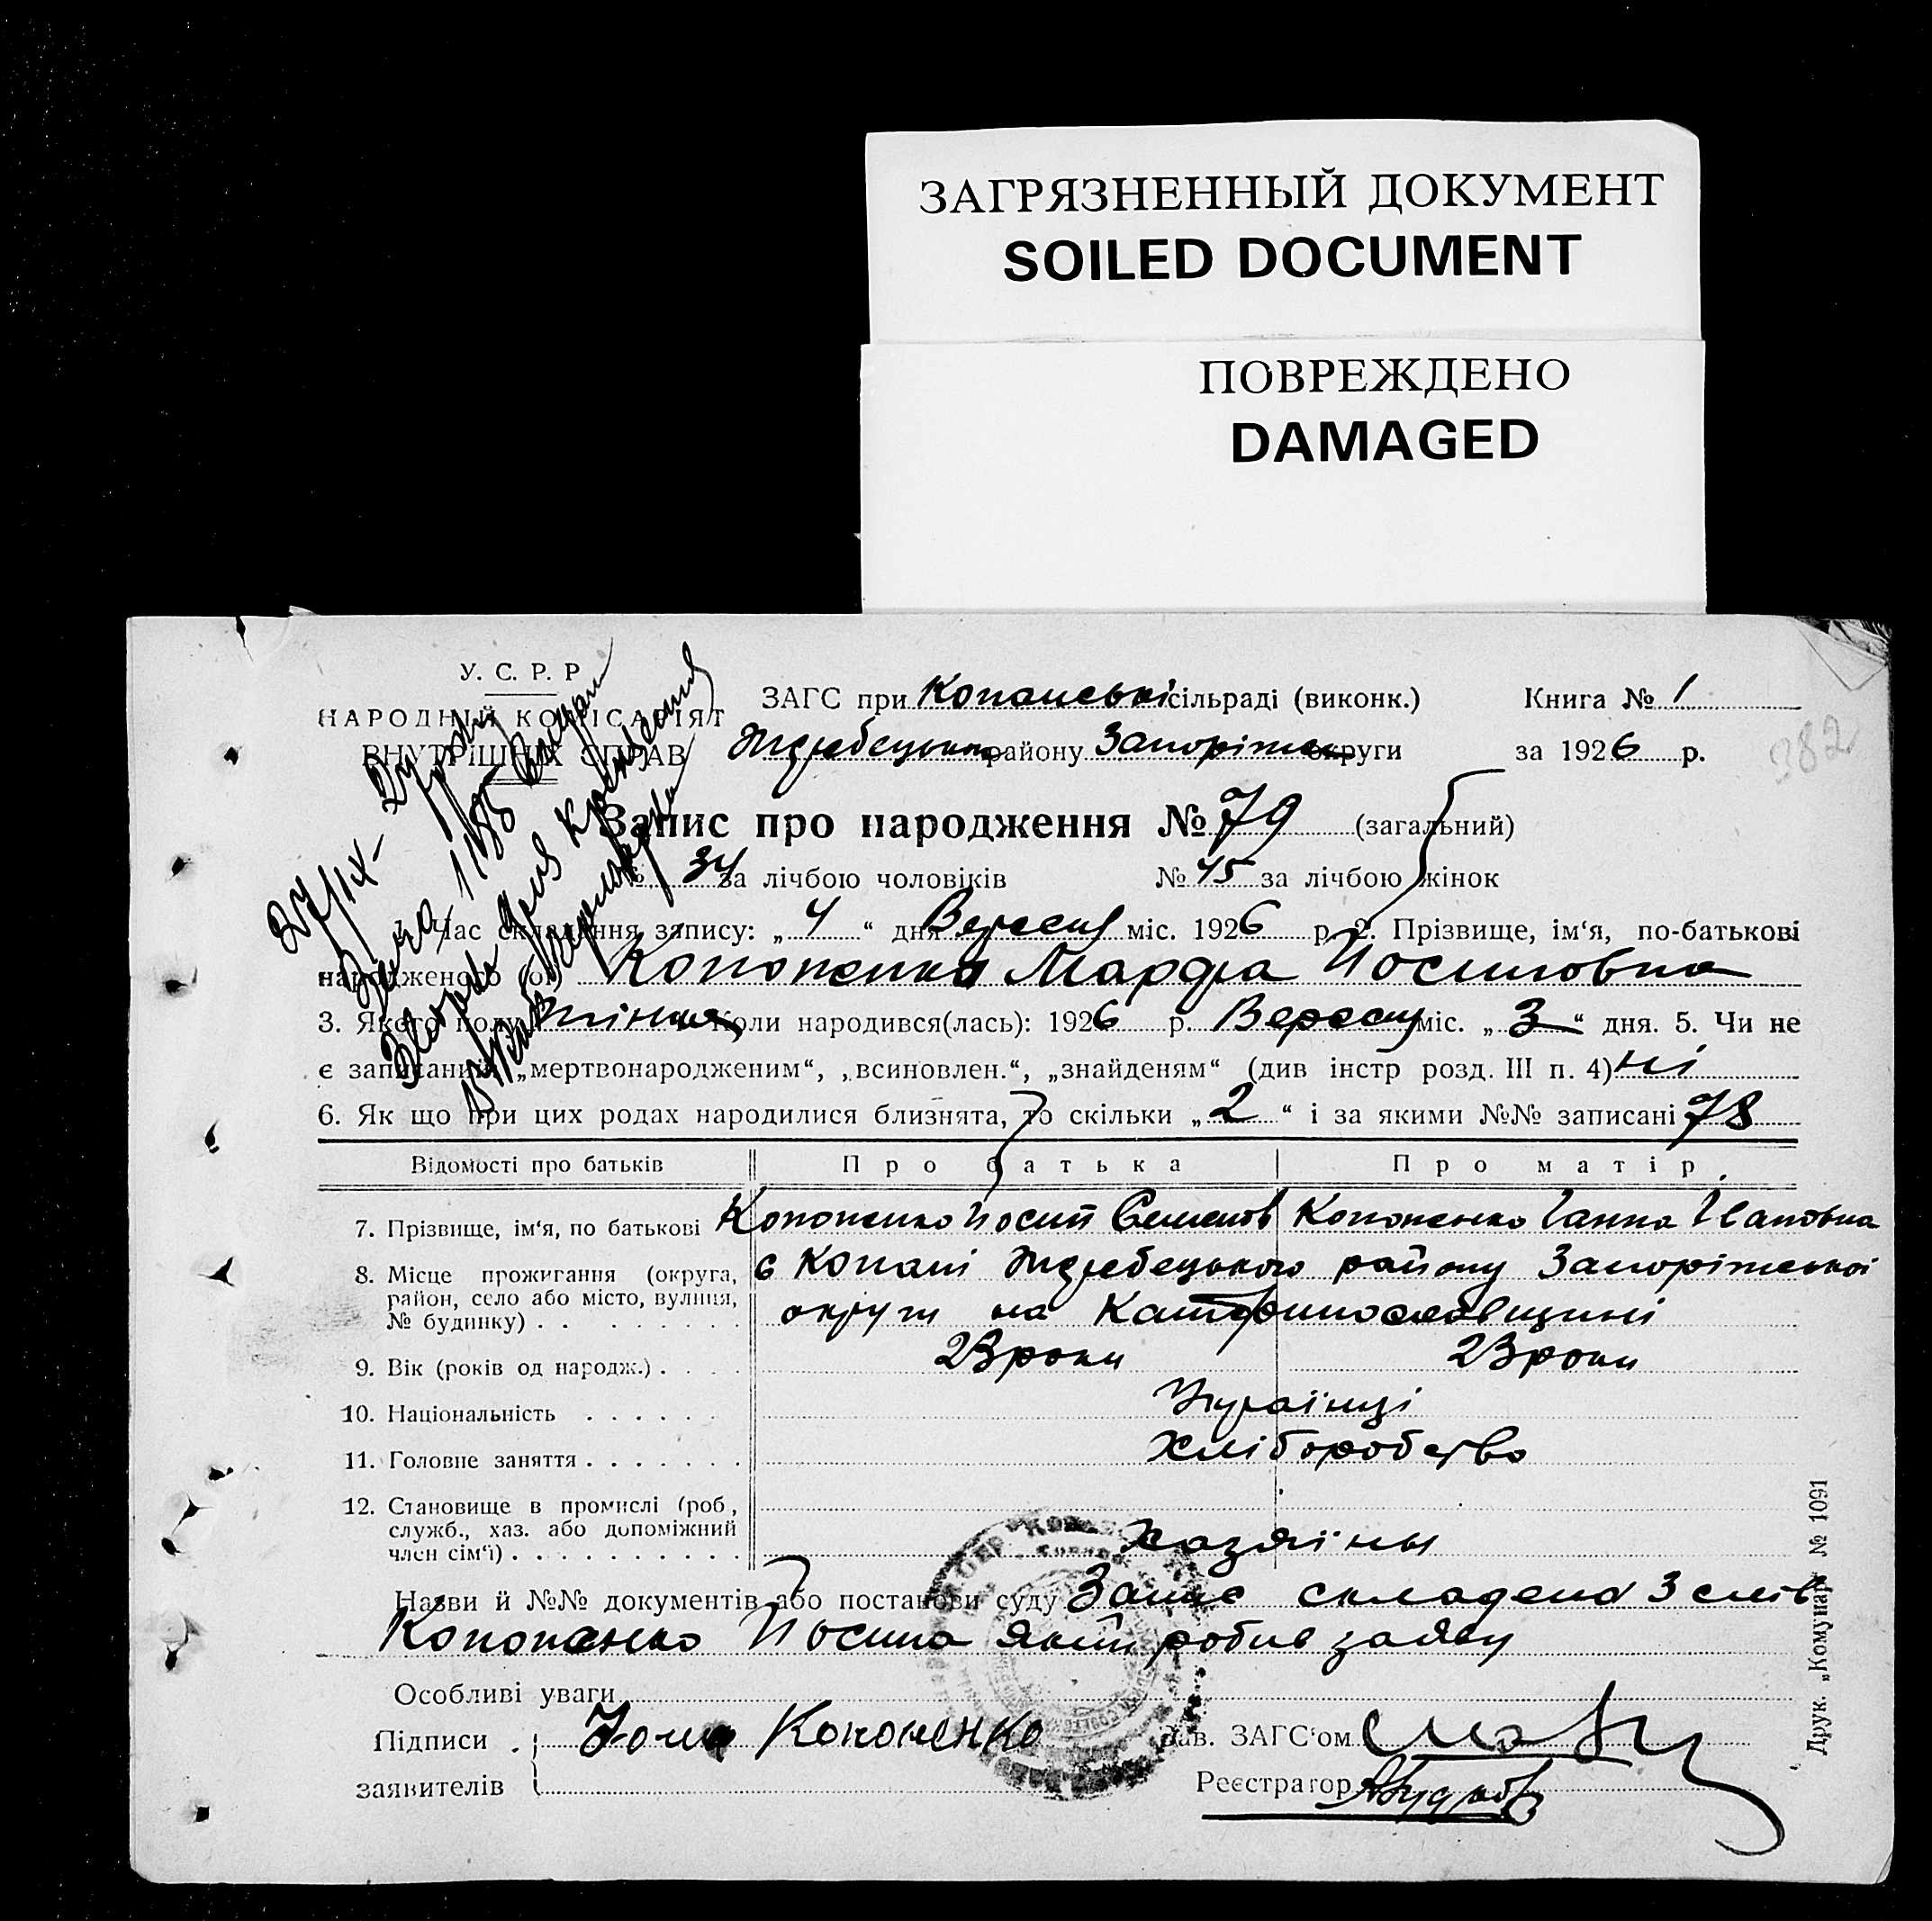 ЗАГРЯЗНЕННЫЙ ДОКУМЕНТ
SOILED DOCUMENT
ПОВРЕЖДЕНО
DAMAGED
У. С. Р. Р
НАРОДНІЙ КОМІСАРІЯТ
ВНУТРІШНІХ СПРАВ
ЗАГС при Копанські сільраді (виконк.) Книга № 1
Жеребецьком району Запоріжськ округи за 1926 р.
382
Запис про народження № 79 (загальний)
№ 34 за лічбою чоловіків № 45 за лічбою жінок
27/IX - 27 року
Час складання запису: „ 4 “ дня Вересня міс. 1926 р. 2. Прізвище, ім‘я, по-батькові
народженого (ої) Кононенко Марфа Йосиповна
3. Якого полу жіноча Коли народився(лась): 1926 р. Вересня міс. „ 3 “ дня. 5. Чи не
є записаний „мертвонародженим“, „всиновлен.“, „знайденям“ (див інстр розд. III п. 4) ні
6. Як що при цих родах народилися близнята, то скільки „ 2 “ і за якими №№ записані 78
Відомості про батьків Про батька Про матір
7. Прізвище, ім‘я, по батькові Кононенко Йосип Семенов Кононенко Ганна Івановна
8. Місце прожигання (округа, район, село або місто, вулиця, № будинку) . . с Копані Жеребецького району Запоріжської
округи на Катеринославщині
9. Вік (років од народж.) . . . . 23 роки 23 роки
10. Національність . . . . . . Українці
11. Головне заняття . . . . . . . Хліборобство
12. Становище в промислі (роб, служб., хаз. або допоміжний член сім‘ї) . . . . . . . . . . Хазяїны
Назви й №№ документів або постанови суду Запис складено з слів
Кононенко Йосипа який робив заяву
Особливі уваги
Підписи заявителів Кононенко
Зав. ЗАГС‘ом
Реєстратор
Друк. „Комунар“ № 1091